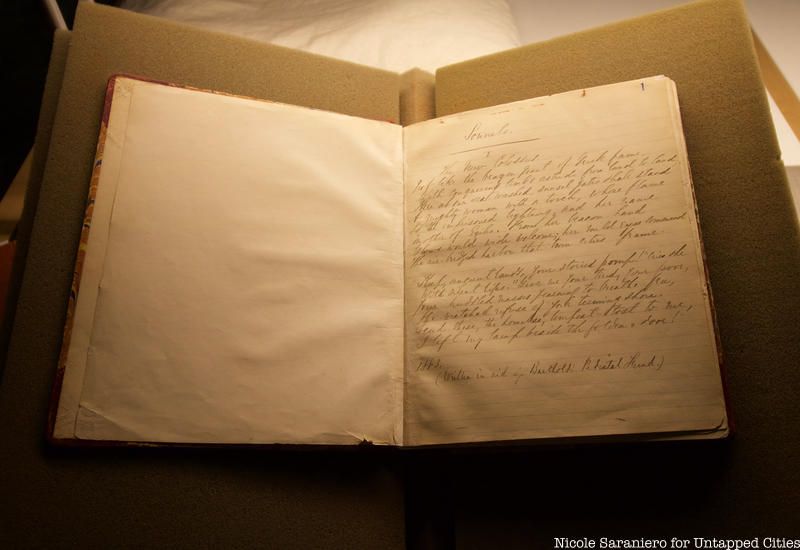 1
Sonnets.
The New Colossus.
Not like the brazen giant of Greek fame
With conquering limbs astride from land to land;
Here at our sea-washed sunset-gates shall stand
A mighty woman with a torch, whose flame
Is the imprisoned lightning, and her name
Mother of Exiles. From her beacon-hand
Glows world-wide welcome; her mild eyes command
The air-bridged harbor that twin-cities frame.
"Keep, ancient lands, your storied pomp!" cries she
With silent lips. "Give me your tired, your poor,
Your huddled masses yearning to breathe free,
The wretched refuse of your teeming shore.
Send these, the homeless, tempest-tost to me,
I lift my lamp beside the golden door!"
1883.
(Written in aid of Bartholdi Pedestal Fund.)
Nicole Saraniero for Untapped Cities